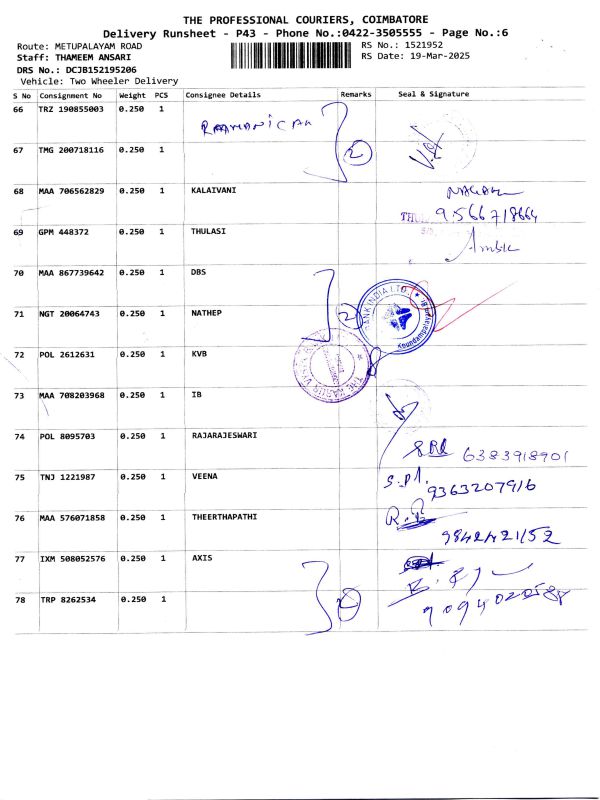 THE PROFESSIONAL COURIERS, COIMBATORE
Delivery Runsheet - P43 - Phone No.:0422-3505555 - Page No.:6
Route: METUPALAYAM ROAD RS No.: 1521952
Staff: THAMEEM ANSARI RS Date: 19-Mar-2025
DRS No.: DCJB152195206
Vehicle: Two Wheeler Delivery
S No Consignment No Weight PCS Consignee Details Remarks Seal & Signature
66 TRZ 190855003 0.250 1
67 TMG 200718116 0.250 1 2
68 MAA 706562829 0.250 1 KALAIVANI
9566718664
69 GPM 448372 0.250 1 THULASI
70 MAA 867739642 0.250 1 DBS
71 NGT 20064743 0.250 1 NATHEP 2
72 POL 2612631 0.250 1 KVB
73 MAA 708203968 0.250 1 IB
74 POL 8095703 0.250 1 RAJARAJESWARI
6383918901
75 TNJ 1221987 0.250 1 VEENA
9363207916
76 MAA 576071858 0.250 1 THEERTHAPATHI
9842421152
77 IXM 508052576 0.250 1 AXIS
78 TRP 8262534 0.250 1